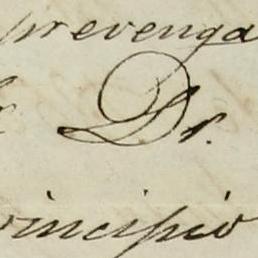 prevenga
Dr.
rincipio